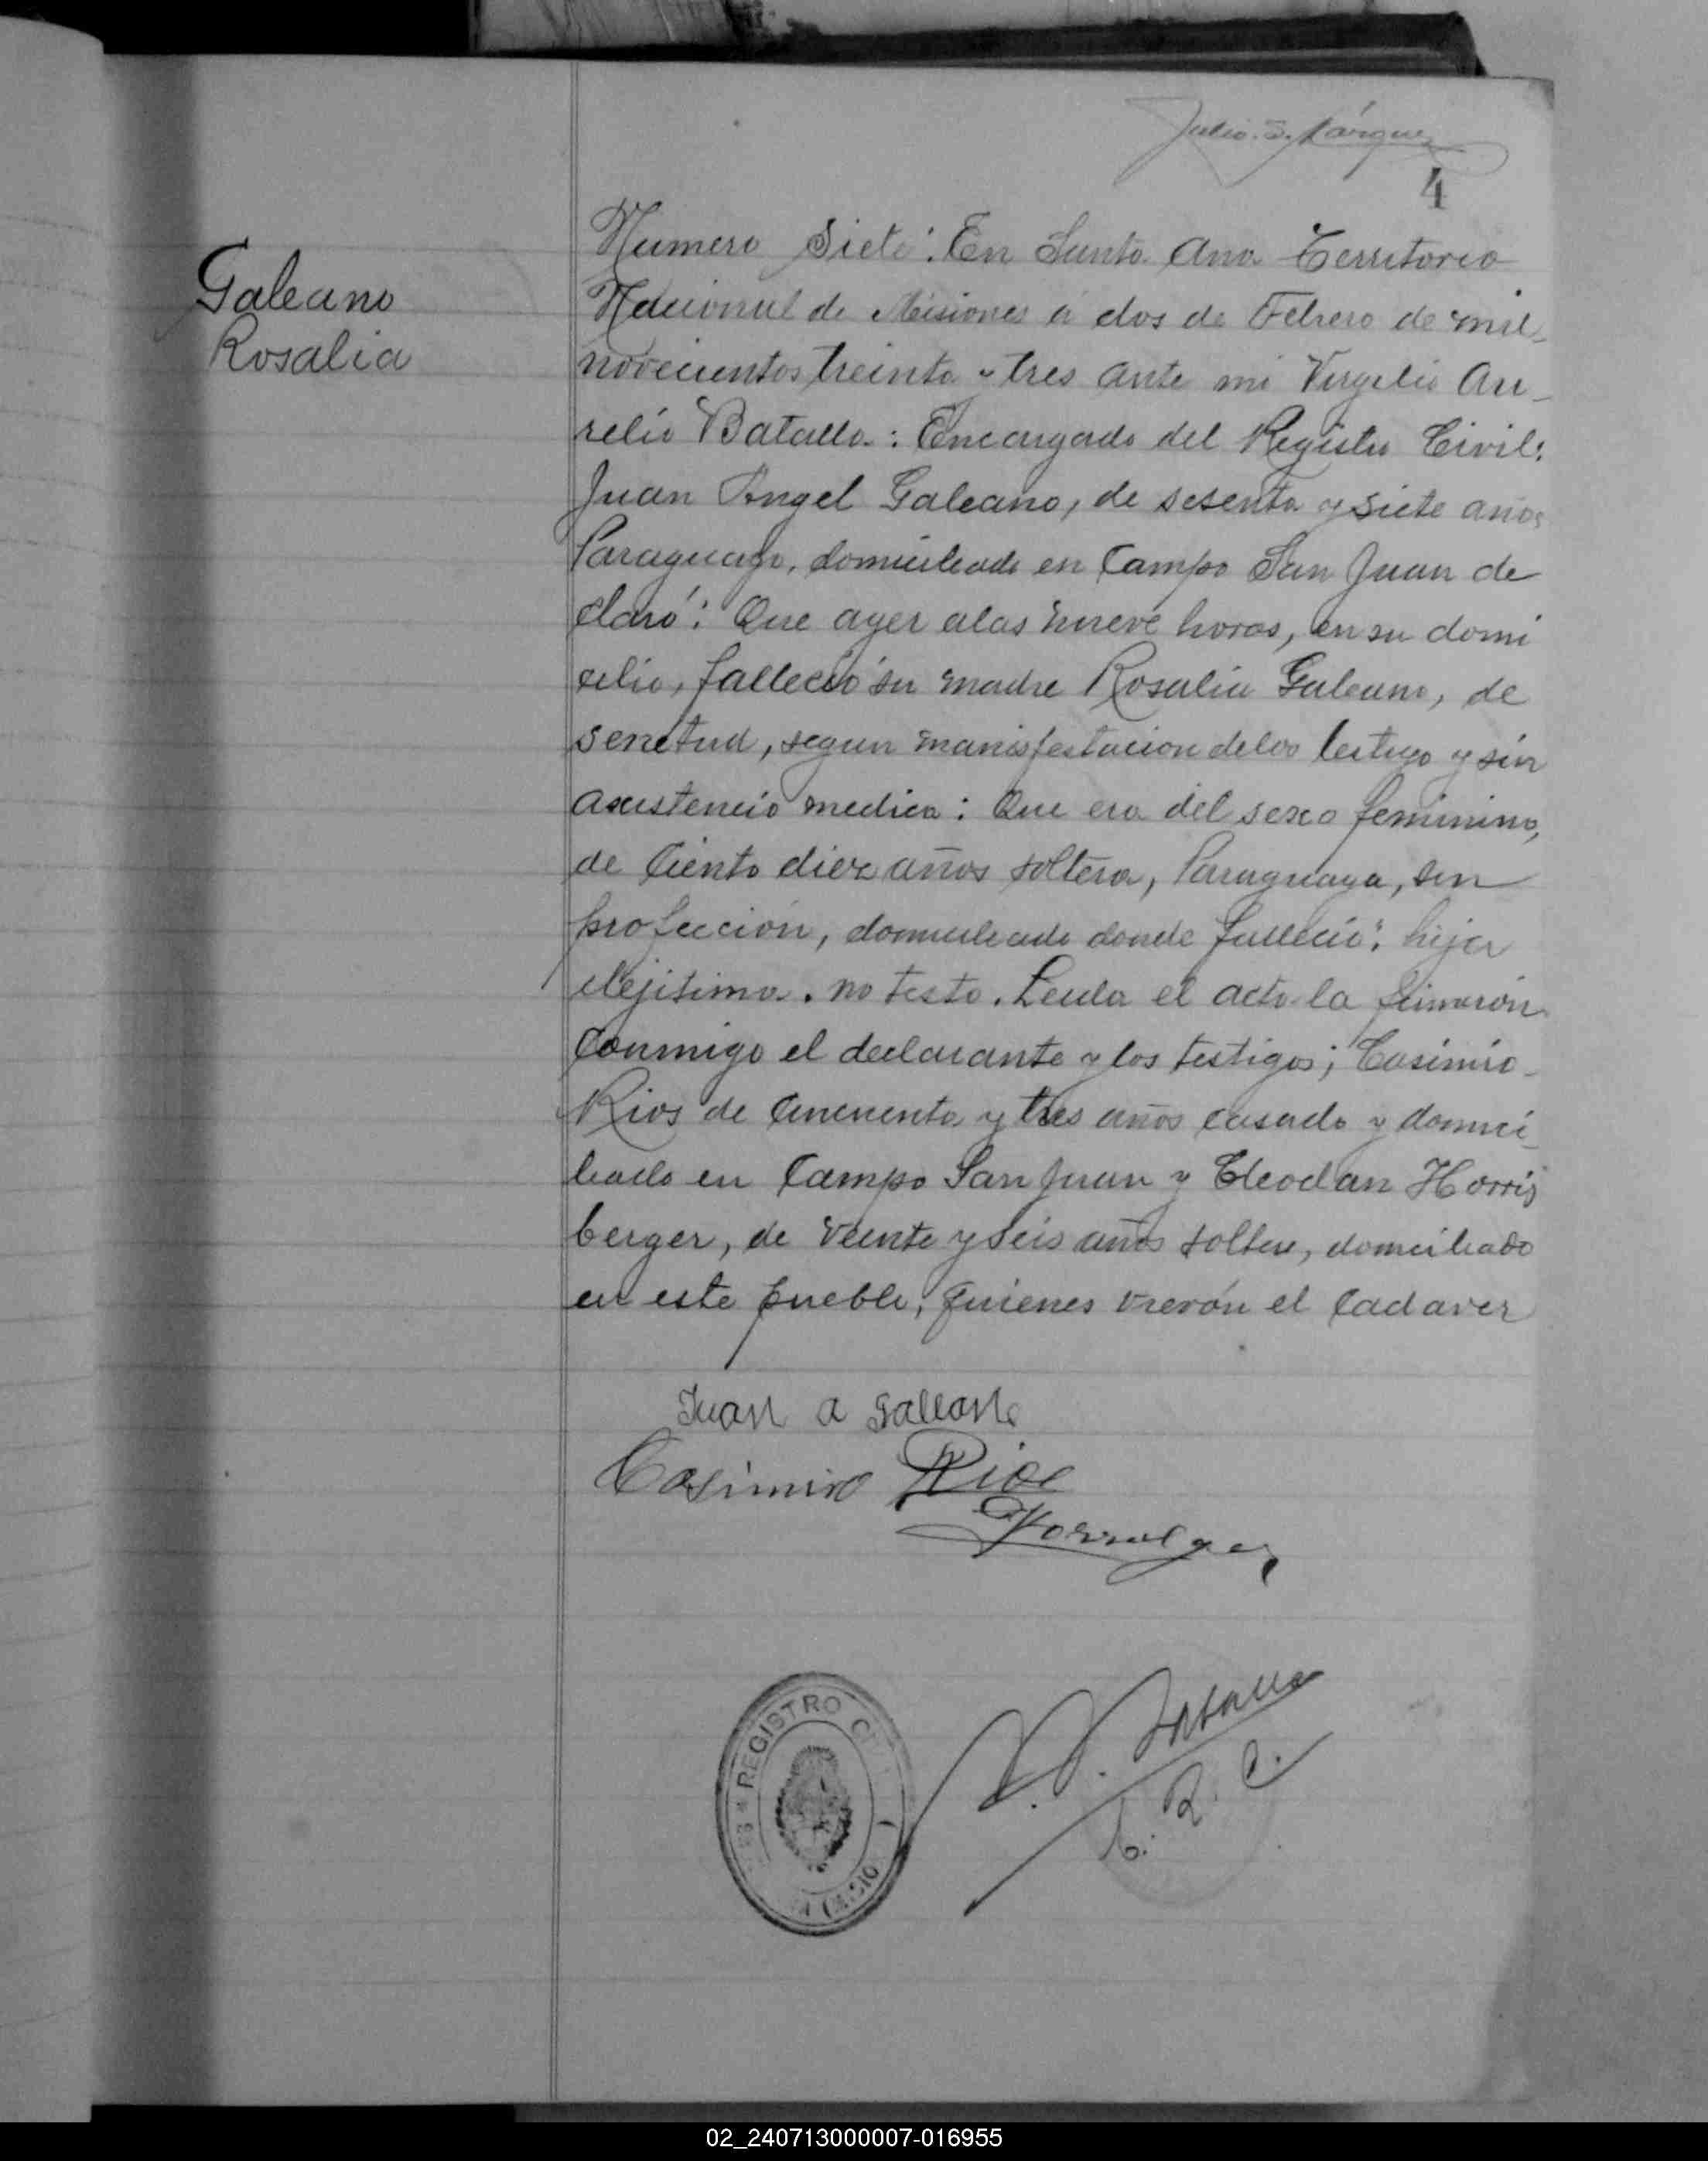 Julio. S. Márquez
4
Galeano
Rosalia
Numero Siete: En Santa Ana Territorio
Nacional de Misiones á dos de Febrero de mil
novecientos treinta y tres ante mi Virgilio Au-
relio Batalla: Encargado del Registro Civil:
Juan Angel Galeano, de sesenta y siete años
Paraguayo, domiciliado en Campo San Juan de
claró: Que ayer alas nueve horas, en su domi
cilio, falleció su madre Rosalia Galeano, de
senetud, segun manisfestacion delos testigo y sin
asistencia medica: Que era del sexo feminino,
de Ciento diez años soltera, Paraguaya, sin
profección, domiciliada donde falleció: hija
elejitima. no testo. Leida el acta la firmarón
Conmigo el declarante y los testigos; Casimiro
Rios de Cincuenta y tres años casado y domici-
liado en Campo San Juan y Eleodan Horris
berger, de veinte y seis años soltero, domiciliado
en este pueblo, quienes vierón el Cadaver
Juan a galeano
Casimiro Rios
V. A. Batalla
E. R. C.
REGISTRO CIVIL
02_240713000007-016955